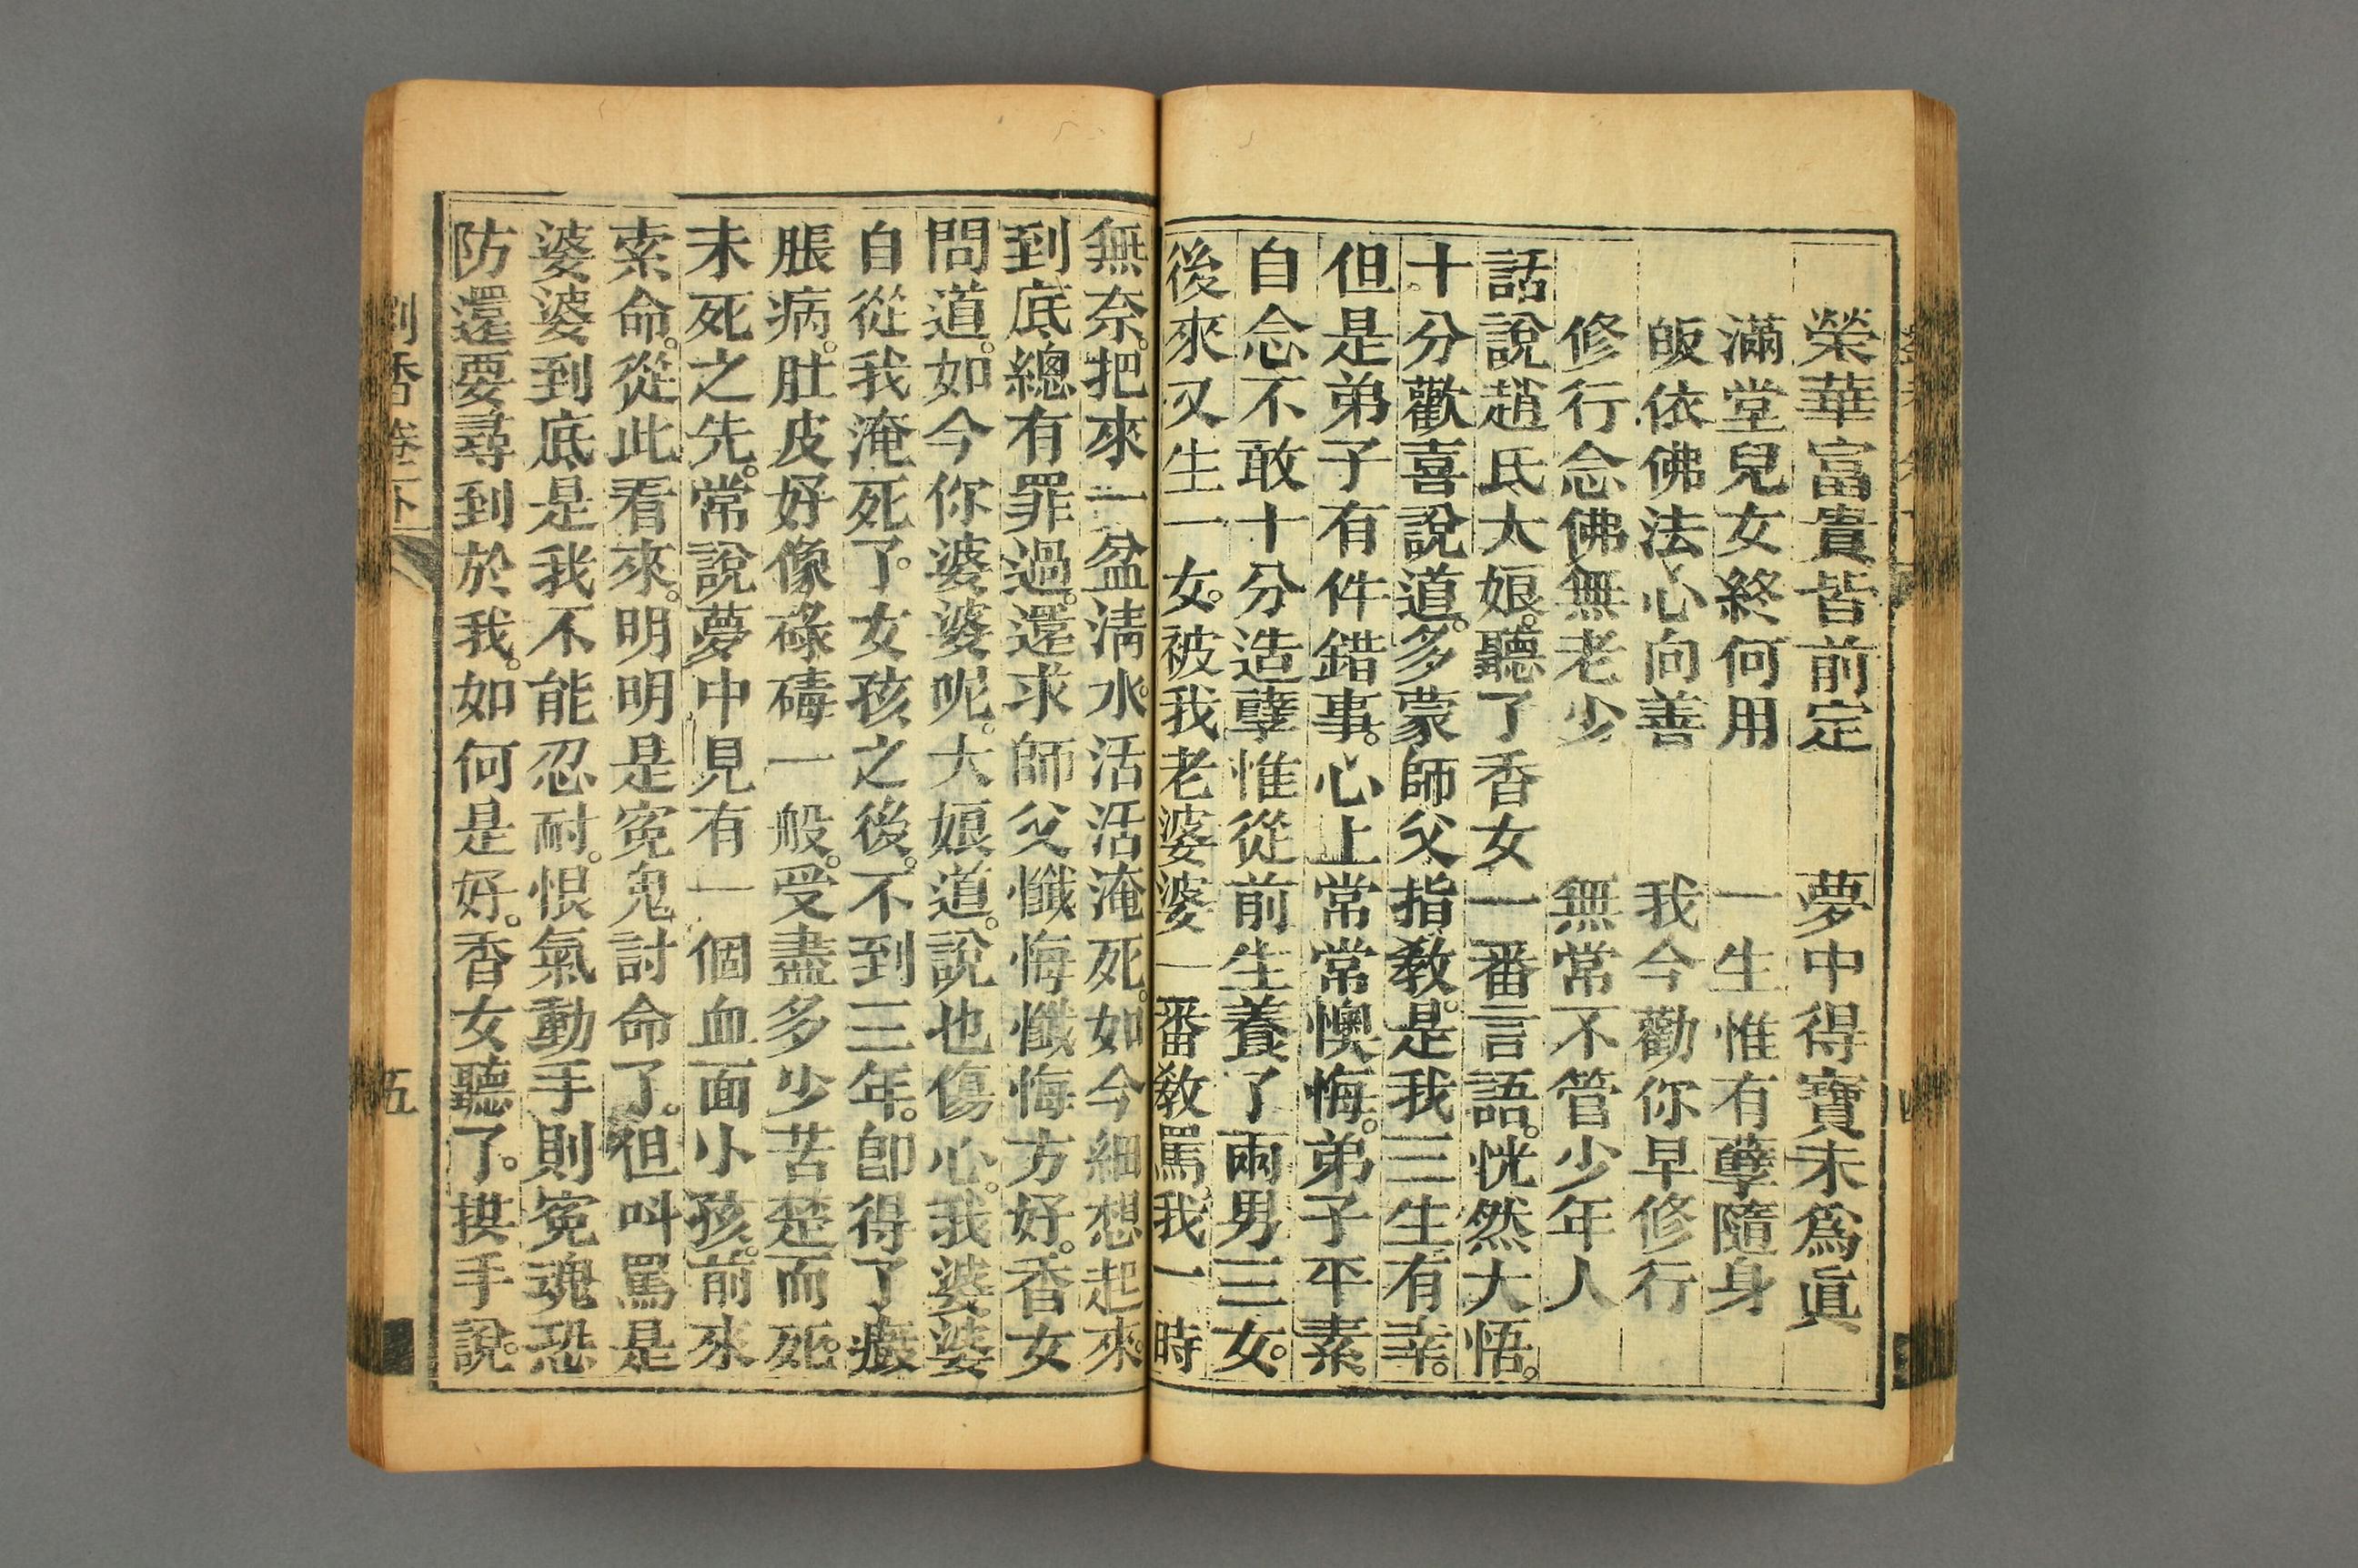 榮華富貴皆前定　夢中得寶未爲眞
滿堂兒女終何用　一生惟有孽隨身
皈依佛法心向善　我今勸你早修行
修行念佛無老少　無常不管少年人
話說趙氏大娘。聽了香女一番言語。恍然大悟。
十分歡喜說道。多蒙師父指教。是我三生有幸。
但是弟子有件錯事。心上常常懊悔。弟子平素
自念不敢十分造孽惟從前生養了兩男三女。
後來又生一女。被我老婆婆一番教罵我一時
無奈。把來一盆淸水。活活淹死。如今細想起來。
到底總有罪過。還求師父懺悔懺悔方好。香女
問道。如今你婆婆呢。大娘道。說也傷心。我婆婆
自從我淹死了。女孩之後。不到三年。卽得了癥
脹病。肚皮好像碌碡一般。受盡多少苦楚而死。
未死之先。常說夢中見有一個血面小孩。前來
索命。從此看來。明明是寃鬼討命了。但叫罵是
婆婆到底是我不能忍耐。恨氣動手則寃魂恐
防還要尋到於我。如何是好。香女聽了。拱手說。
劉香卷下
五